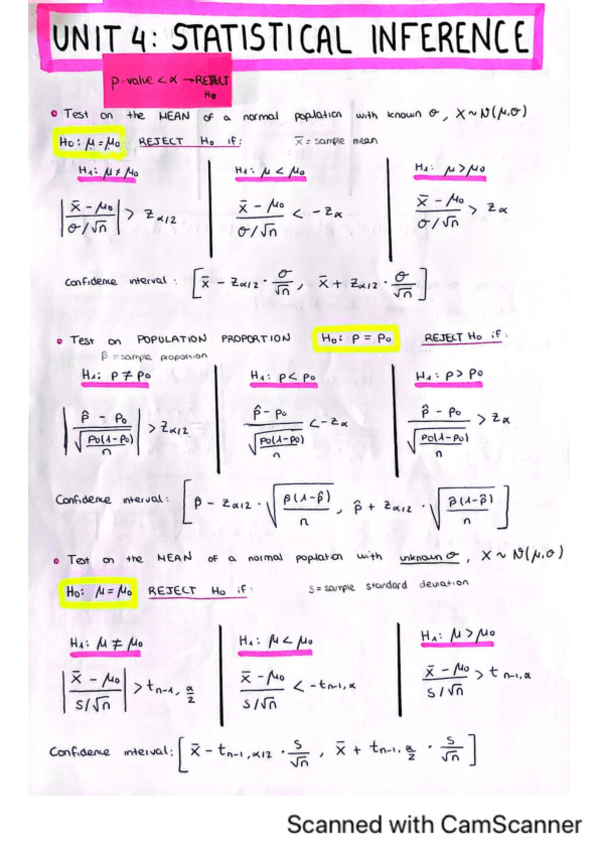 UNIT 4: STATISTICAL INFERENCE
p-value < α → REJECT
H₀
• Test on the MEAN of a normal population with known σ, X ~ N(μ,σ)
H₀: μ = μ₀ REJECT H₀ if: x̄ = sample mean
H₁: μ ≠ μ₀ H₁: μ < μ₀ H₁: μ > μ₀
|(x̄ - μ₀)/(σ/√n)| > z α/2 (x̄ - μ₀)/(σ/√n) < -zα (x̄ - μ₀)/(σ/√n) > zα
Confidence interval: [x̄ - zα/2 · σ/√n, x̄ + zα/2 · σ/√n]
• Test on POPULATION PROPORTION H₀: p = p₀ REJECT H₀ if:
p̂ = sample proportion
H₁: p ≠ p₀ H₁: p < p₀ H₁: p > p₀
|(p̂ - p₀)/√(p₀(1-p₀)/n)| > zα/2 (p̂ - p₀)/√(p₀(1-p₀)/n) < -zα (p̂ - p₀)/√(p₀(1-p₀)/n) > zα
Confidence interval: [p̂ - zα/2 · √(p̂(1-p̂)/n), p̂ + zα/2 · √(p̂(1-p̂)/n)]
• Test on the MEAN of a normal population with unknown σ, X ~ N(μ,σ)
H₀: μ = μ₀ REJECT H₀ if: s = sample standard deviation
H₁: μ ≠ μ₀ H₁: μ < μ₀ H₁: μ > μ₀
|(x̄ - μ₀)/(s/√n)| > t n-1, α/2 (x̄ - μ₀)/(s/√n) < -t n-1, α (x̄ - μ₀)/(s/√n) > t n-1, α
Confidence interval: [x̄ - t n-1, α/2 · s/√n, x̄ + t n-1, α/2 · s/√n]
Scanned with CamScanner